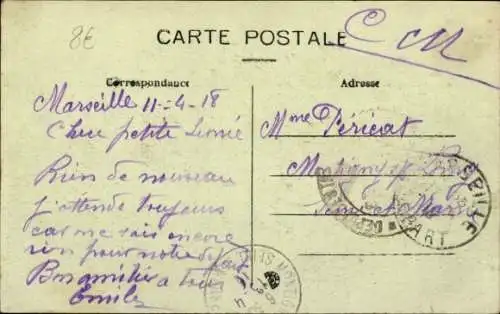 8€
CARTE POSTALE
C M
Correspondance
Adresse
Marseille 11-4-18
Chere petite Leonie
Rien de nouveau
j'attends toujours
car ne sais encore
rien pour notre depart
Bon amitiés a tous
Emile
Mme Péricat
Montigny
Seine et Marne
DEPART